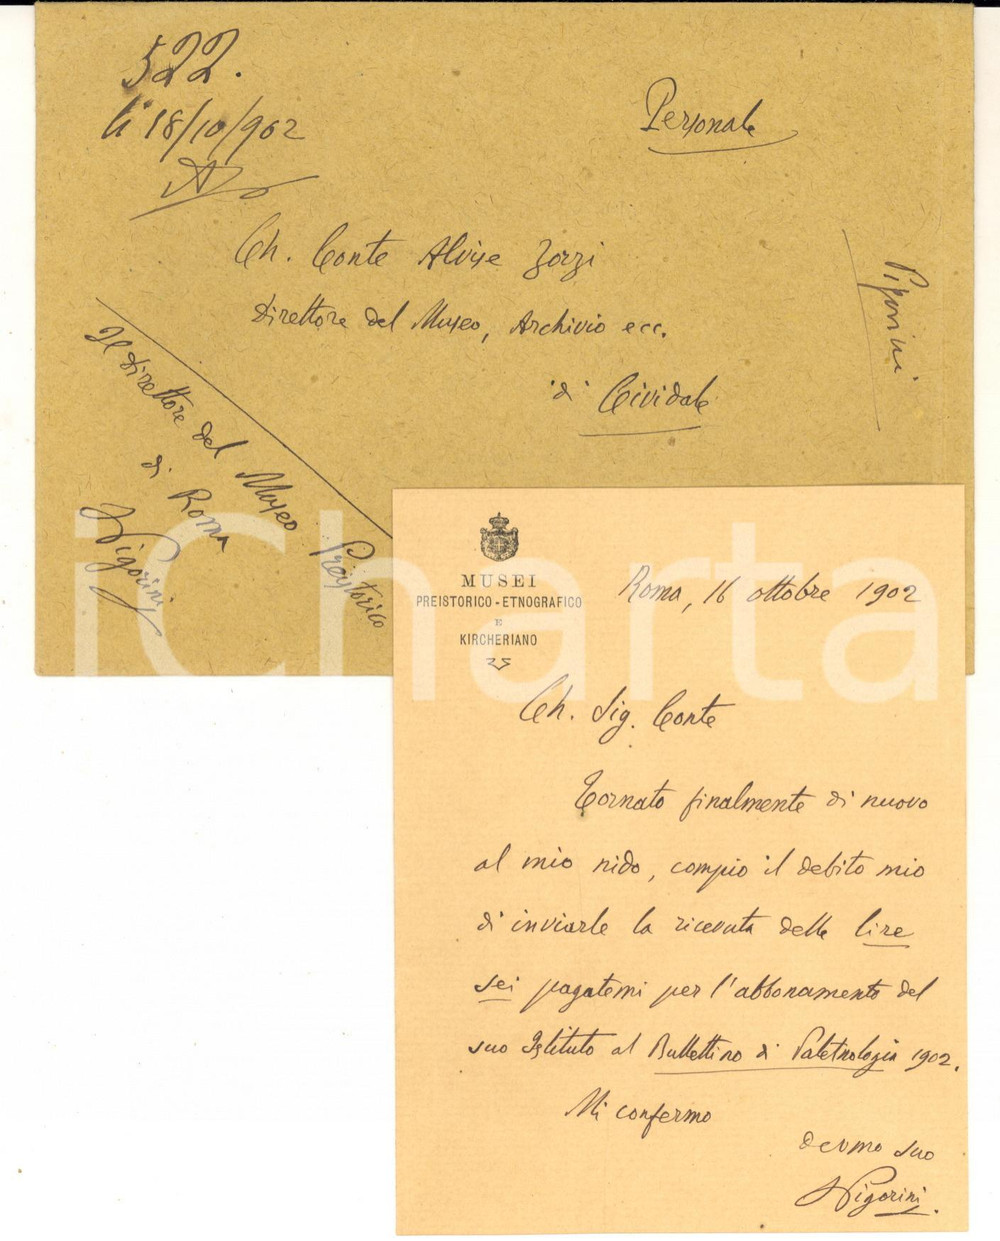 522.
li 18/10/902
Personale
Ch. Conte Alvise Zorzi
Direttore del Museo, Archivio ecc.
di Cividale
Pigorini
Il Direttore del Museo Preistorico
di Roma
LPigorini
MUSEI
PREISTORICO-ETNOGRAFICO
E
KIRCHERIANO
Roma, 16 ottobre 1902
Ch. Sig. Conte
Tornato finalmente di nuovo
al mio nido, compio il debito mio
di inviarle la ricevuta delle lire
sei pagatemi per l'abbonamento del
suo Istituto al Bullettino di Paletnologia 1902.
Mi confermo
devmo suo
LPigorini.
iCharta